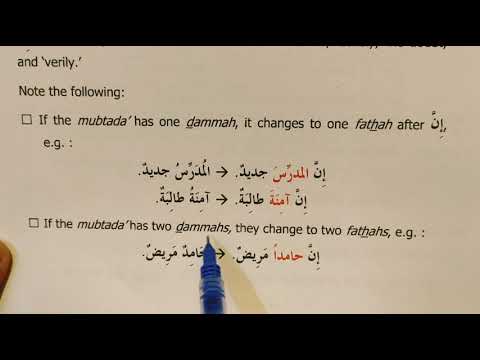 and ‘verily.’
Note the following:
☐ If the mubtada’ has one dammah, it changes to one fathah after إِنَّ,
e.g. :
المُدَرِّسُ جديدٌ. → إِنَّ المدرِّسَ جديدٌ.
آمِنَةُ طالِبَةٌ. → إِنَّ آمِنَةَ طالِبَةٌ.
☐ If the mubtada’ has two dammahs, they change to two fathahs, e.g. :
حَامِدٌ مَرِيضٌ. → إِنَّ حامداً مَرِيضٌ.